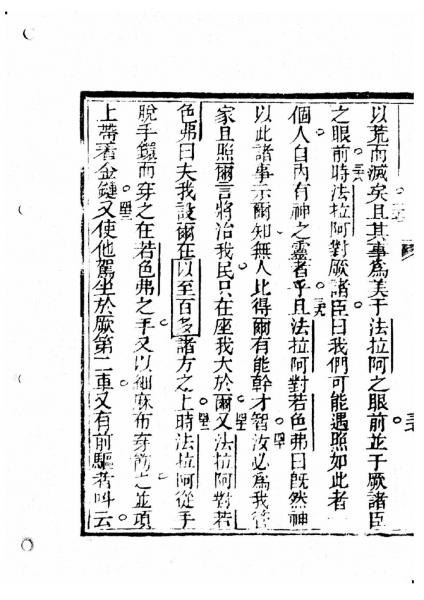 以荒而滅矣且其事為美于法拉阿之眼前並于厥諸臣
之眼前時法拉阿對厥諸臣曰我們可能遇照如此者一
個人自內有神之靈者乎且法拉阿對若色弗曰既然神
以此諸事示爾知無人比得爾有能幹才智汝必為我管
家且照爾言將治我民只在座我大於爾又法拉阿對若
色弗曰夫我設爾在以至百多諸方之上時法拉阿從手
脫手鐶而穿之在若色弗之手又以細麻布穿飾之並項
上帶着金鏈又使他駕坐於厥第二車又有前驅者叫云